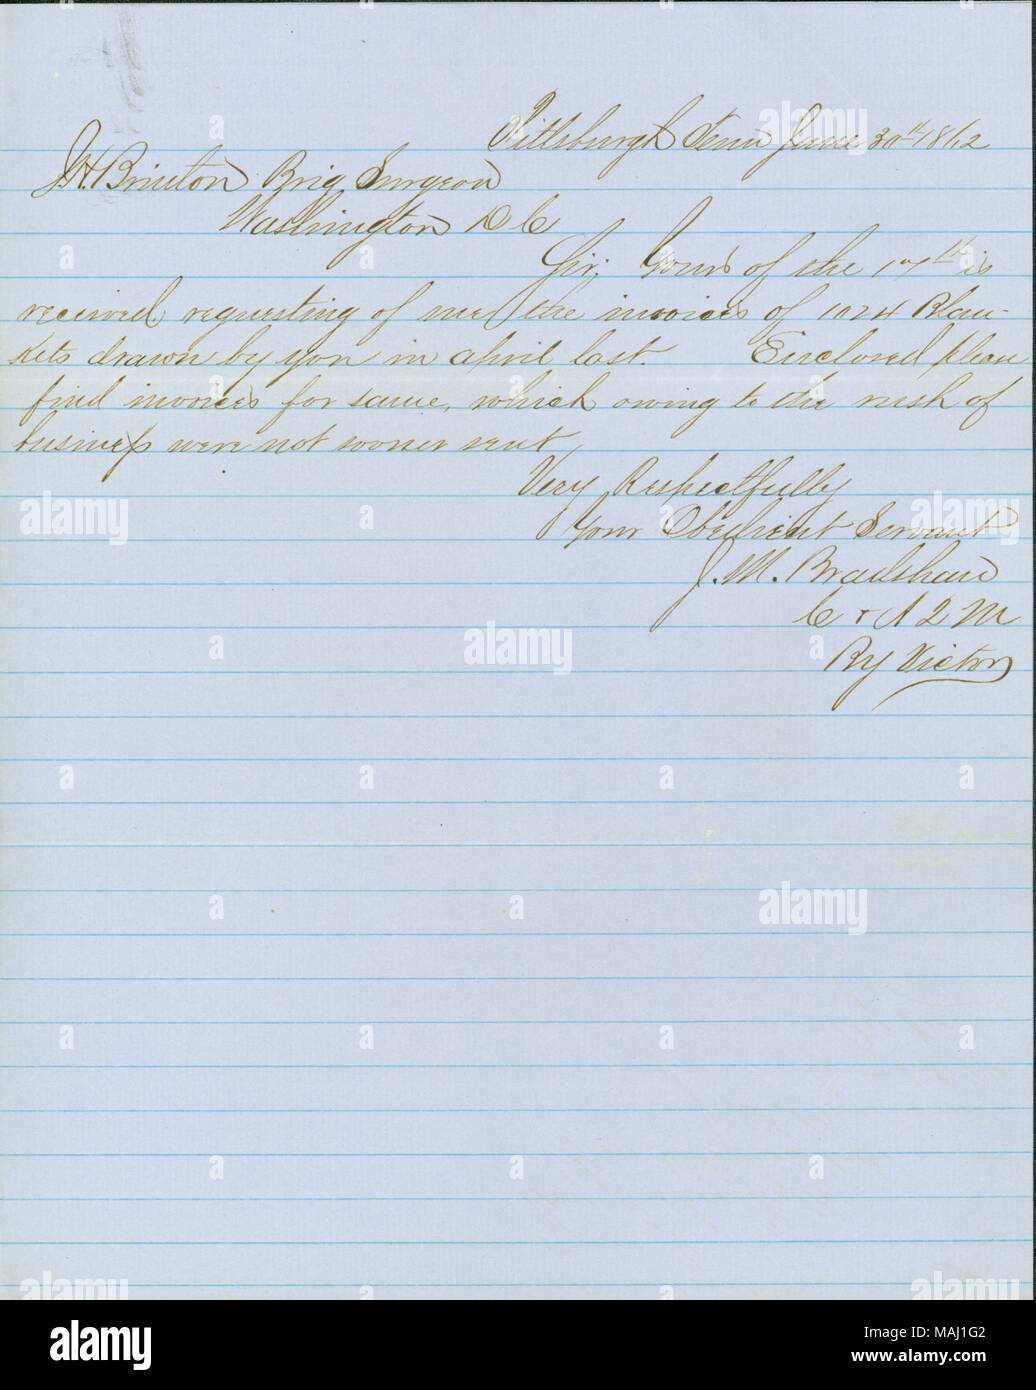 Pittsburgh Tenn June 30th 1862
J.H. Brinton Brig Surgeon
Washington D C
Sir; Yours of the 17th is
received requesting of me the invoices of 1024 Blan-
kets drawn by you in april last. Enclosed please
find invoices for same, which owing to the rush of
business were not sooner sent,
Very Respectfully
Your Obedient Servant
J. M. Bradshaw
C & A Q M
By Victor
a alamy stock photo
alamy
Image ID: MAJ1G2
www.alamy.com